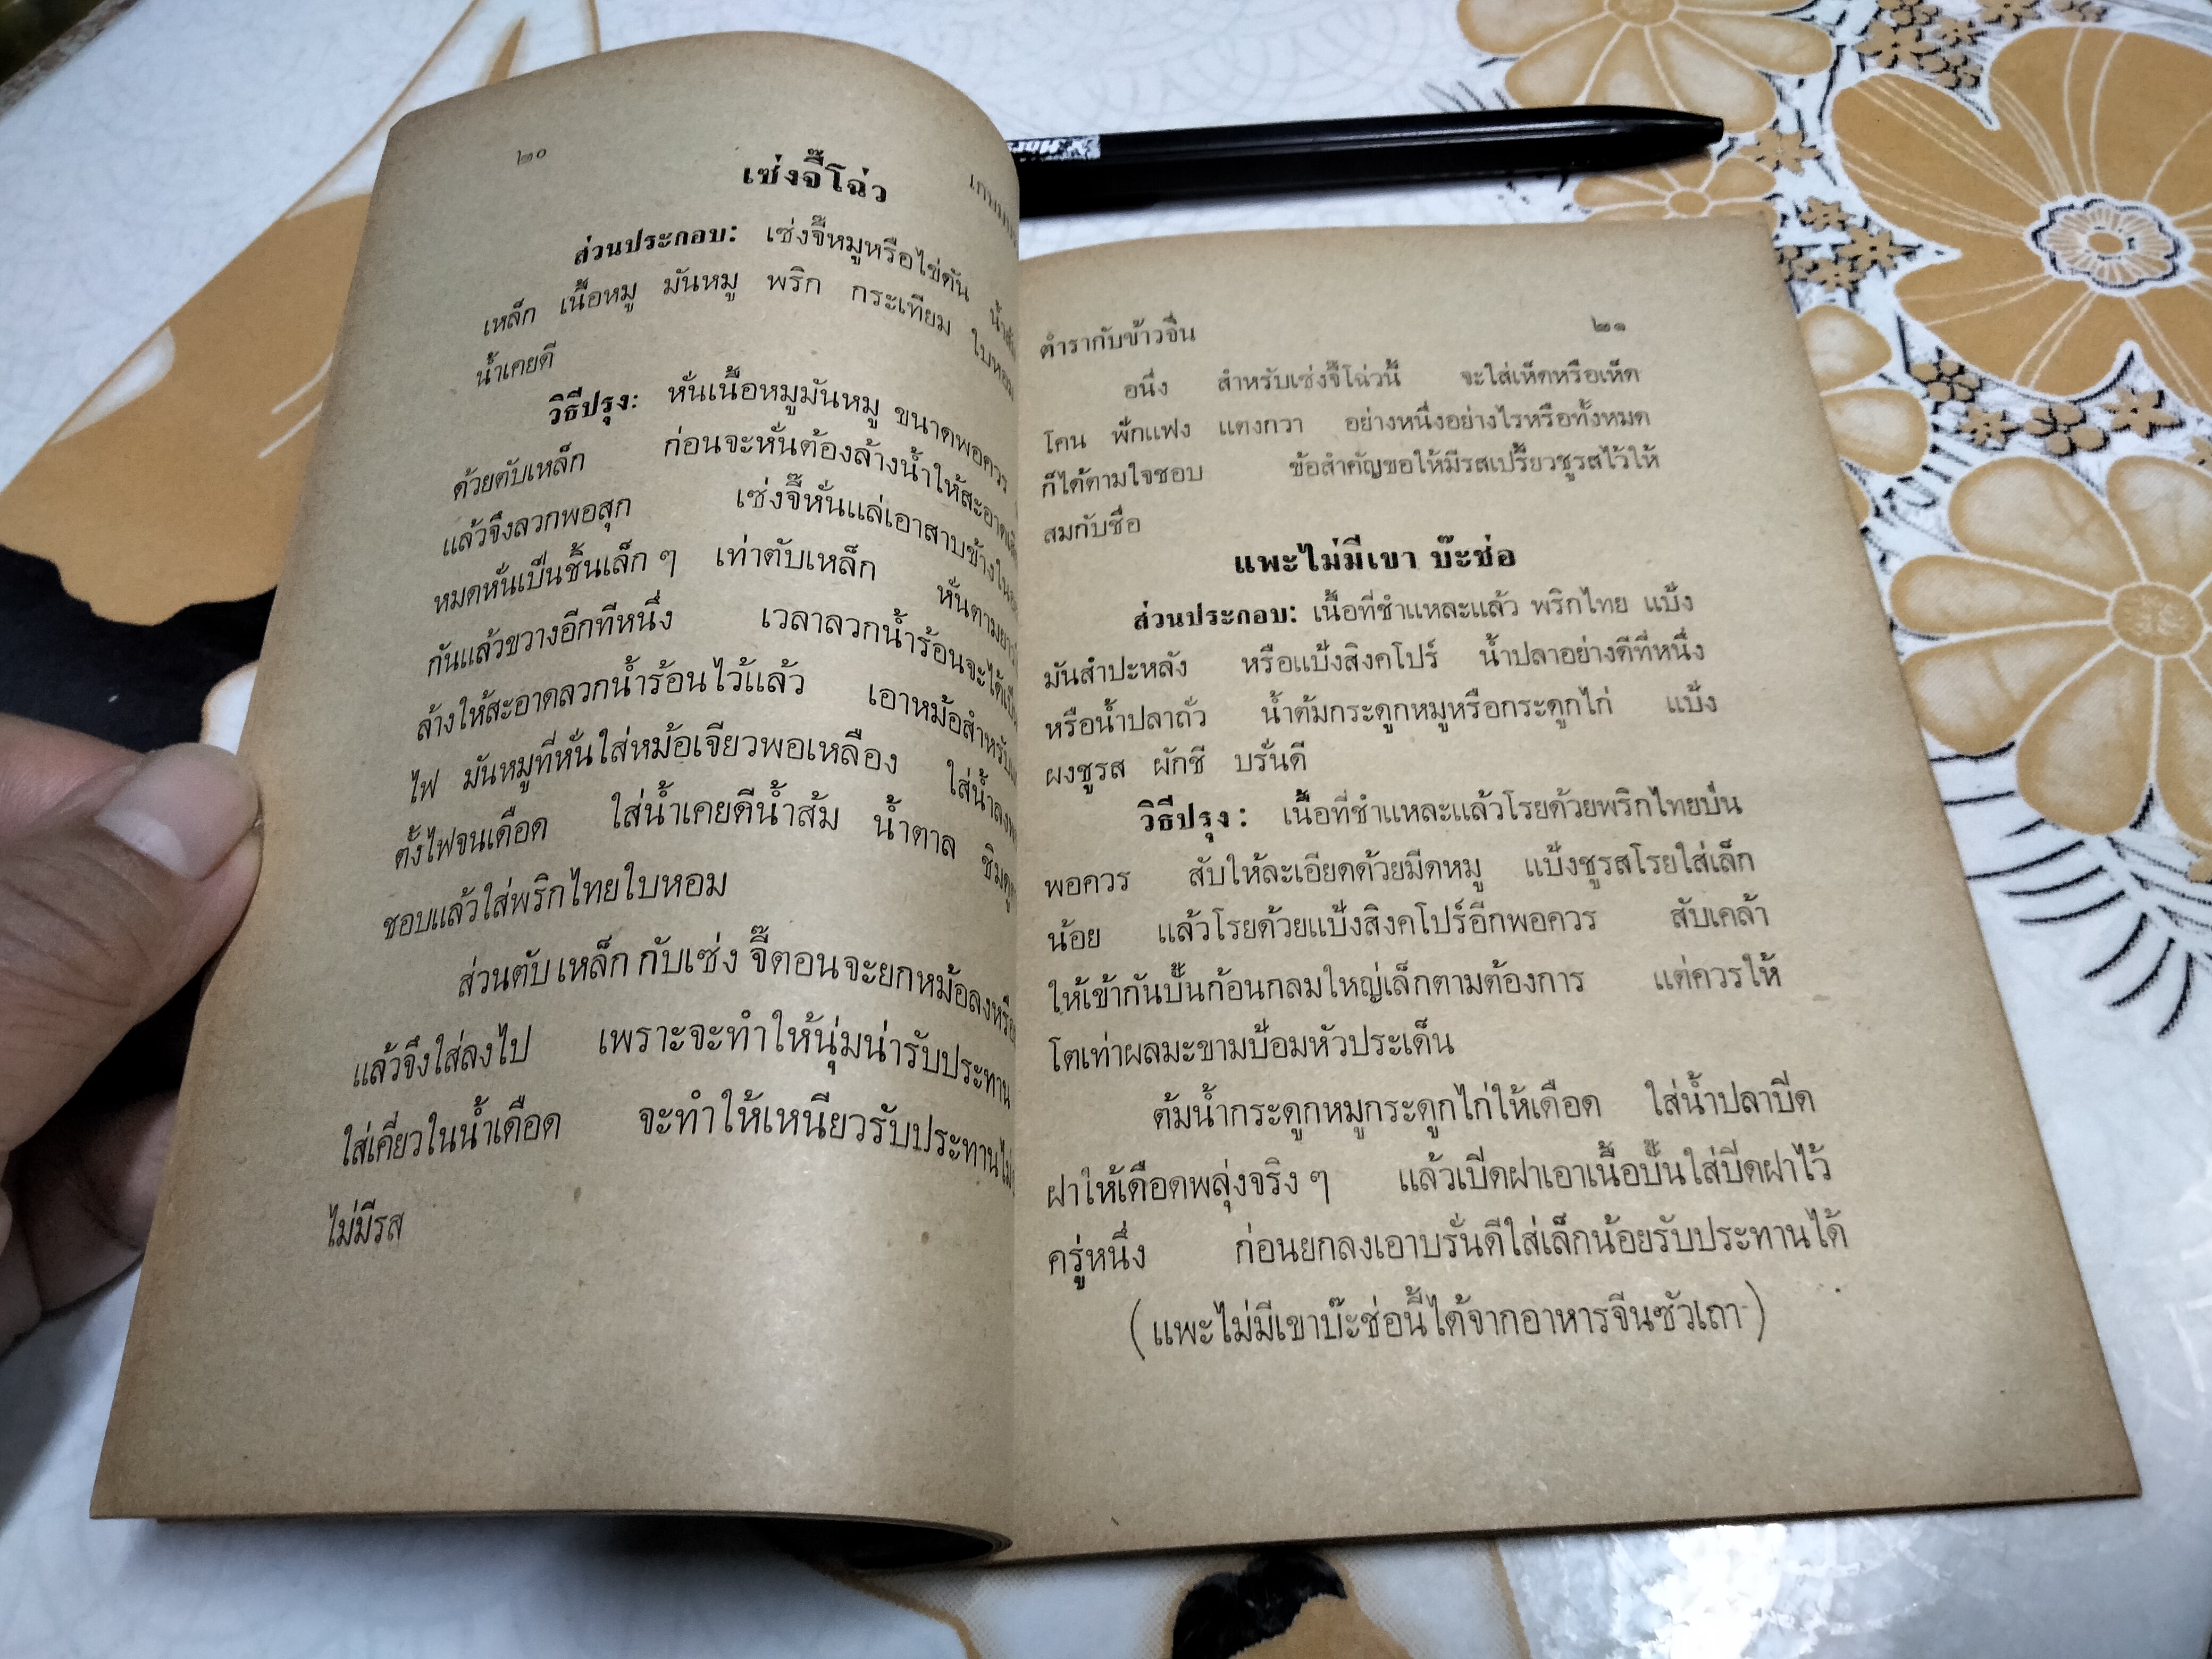 ๒๐
เซ่งจี๊โฉ่ว
ส่วนประกอบ: เซ่งจี๊หมูหรือไข่ดัน
เหล็ก เนื้อหมู มันหมู พริก กระเทียม ใบหอม
น้ำเคยดี
วิธีปรุง: หั่นเนื้อหมูมันหมู ขนาดพอควร
ด้วยตับเหล็ก ก่อนจะหั่นต้องล้างน้ำให้สะอาด
แล้วจึงลวกพอสุก เซ่งจี๊หั่นแล่เอาสาบข้างใน
หมดหั่นเป็นชิ้นเล็ก ๆ เท่าตับเหล็ก หั่นตาม
กันแล้วขวางอีกทีหนึ่ง เวลาลวกน้ำร้อนจะได้
ล้างให้สะอาดลวกน้ำร้อนไว้แล้ว เอาหม้อสำหรับ
ไฟ มันหมูที่หั่นใส่หม้อเจียวพอเหลือง ใส่น้ำลง
ตั้งไฟจนเดือด ใส่น้ำเคยดีน้ำส้ม น้ำตาล ชิมดู
ชอบแล้วใส่พริกไทยใบหอม
ส่วนตับเหล็กกับเซ่งจี๊ตอนจะยกหม้อลงหรือ
แล้วจึงใส่ลงไป เพราะจะทำให้นุ่มน่ารับประทาน
ใส่เคี่ยวในน้ำเดือด จะทำให้เหนียวรับประทาน
ไม่มีรส
ตำรากับข้าวจีน ๒๑
อนึ่ง สำหรับเซ่งจี๊โฉ่วนี้ จะใส่เห็ดหรือเห็ด
โคน พักแฟง แตงกวา อย่างหนึ่งอย่างไรหรือทั้งหมด
ก็ได้ตามใจชอบ ข้อสำคัญขอให้มีรสเปรี้ยวชูรสไว้ให้
สมกับชื่อ
แพะไม่มีเขา บ๊ะช่อ
ส่วนประกอบ: เนื้อที่ชำแหละแล้ว พริกไทย แป้ง
มันสำปะหลัง หรือแป้งสิงคโปร์ น้ำปลาอย่างดีที่หนึ่ง
หรือน้ำปลาถั่ว น้ำต้มกระดูกหมูหรือกระดูกไก่ แป้ง
ผงชูรส ผักชี บรั่นดี
วิธีปรุง: เนื้อที่ชำแหละแล้วโรยด้วยพริกไทยป่น
พอควร สับให้ละเอียดด้วยมีดหมู แป้งชูรสโรยใส่เล็ก
น้อย แล้วโรยด้วยแป้งสิงคโปร์อีกพอควร สับเคล้า
ให้เข้ากันปั้นก้อนกลมใหญ่เล็กตามต้องการ แต่ควรให้
โตเท่าผลมะขามป้อมหัวประเด็น
ต้มน้ำกระดูกหมูกระดูกไก่ให้เดือด ใส่น้ำปลาปีด
ฝาให้เดือดพลุ่งจริง ๆ แล้วเปีดฝาเอาเนื้อปั้นใส่ปีดฝาไว้
ครู่หนึ่ง ก่อนยกลงเอาบรั่นดีใส่เล็กน้อยรับประทานได้
(แพะไม่มีเขาบ๊ะช่อนี้ได้จากอาหารจีนซัวเถา)